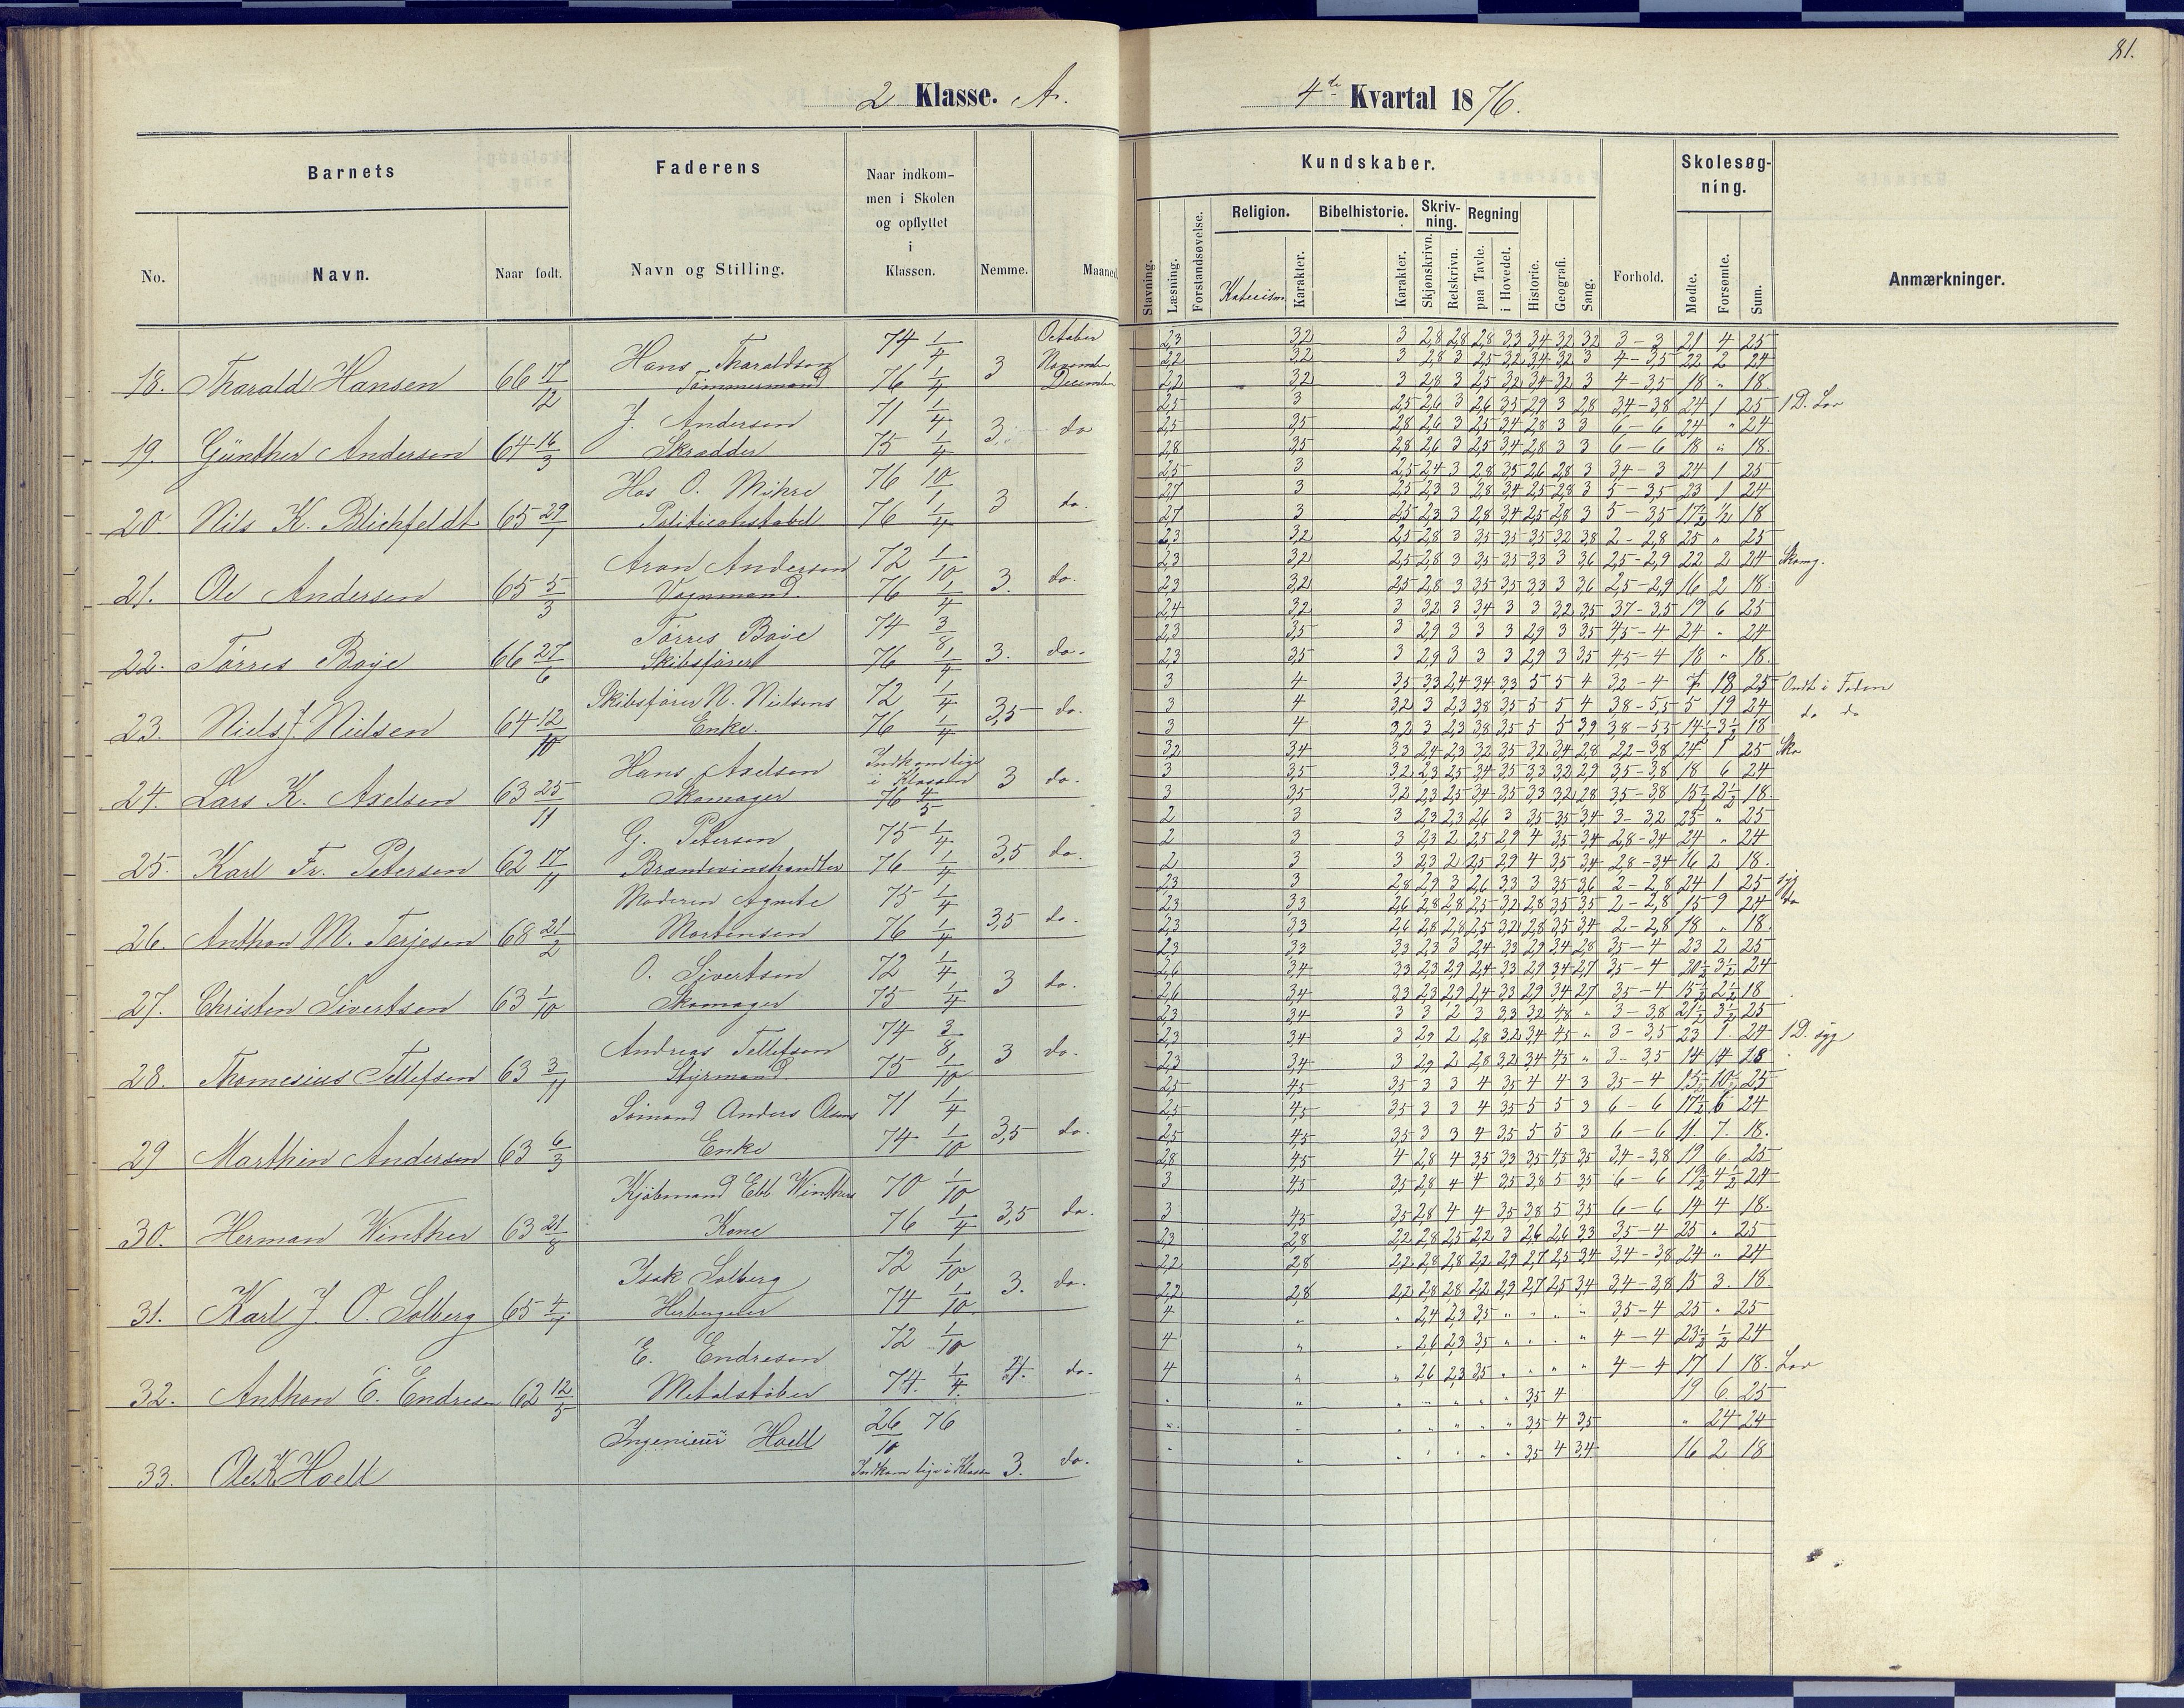 81.
2 Klasse. A.
4de Kvartal 1876.
Barnets
Faderens
Naar indkom-
men i Skolen
og opflyttet
i
Klassen.
Nemme.
Maaned.
No.
Navn.
Naar født.
Navn og Stilling.
Kundskaber.
Stavning.
Læsning.
Forstandsøvelse.
Religion.
Katecism.
Karakter.
Bibelhistorie.
Karakter.
Skriv-
ning.
Skjønskrivn.
Retskrivn.
Regning
paa Tavle.
i Hovedet.
Historie.
Geografi.
Sang.
Forhold.
Skolesøg-
ning.
Mødte.
Forsømte.
Sum.
Anmærkninger.
18. Tharald Hansen 66 17/12 Hans Tharaldsen Tömmermand 74 1/4 76 1/4 3 October November December
19. Günther Andersen 64 16/3 J. Andersen Skrædder 71 1/4 75 1/4 3. do
20. Nils K. Blichfeldt 65 29/1 Hos O. Mihre Politiconstabel 76 10/1 76 1/4 3 do.
21. Ole Andersen 65 5/3 Aron Andersen Vognmand. 72 1/10 76 1/4 3. do.
22. Törres Boye 66 27/6 Törres Boye Skibsförer 74 3/8 76 1/4 3. do.
23. Niels J Nielsen 64 12/10 Skibsförer N. Nielsens Enke. 72 1/4 76 1/4 3,5 do.
24. Lars K. Axelsen 63 25/11 Hans Axelsen Skomager Indkom lige i Klassen 76 4/5 3 do.
25. Karl Fr. Petersen 62 17/11 G. Petersen Brændevinshandler 75 1/4 76 1/4 3,5 do.
26. Anthon M. Terjesen 68 21/2 Moderen Agnete Mortensen 75 1/4 76 1/4 3,5 do.
27. Christen Sivertsen 63 1/10 O. Sivertsen Skomager 72 1/4 75 1/4 3 do.
28. Thomesius Tellefsen 63 3/11 Andreas Tellefsen Styrmand 74 3/8 75 1/10 3 do.
29 Marthin Andersen 63 6/3 Sömand Anders Olsens Enke 71 1/4 74 1/10 3,5 do.
30. Herman Winther 63 21/8 Kjöbmand Ebb. Winthers Kone 70 1/10 76 1/4 3,5 do.
31. Karl J. O. Solberg 65 4/7 Isak Solberg Herbergeier 72 1/10 74 1/10 3. do.
32. Anthon E. Endresen 62 12/5 E. Endresen Metalstöber 72 1/10 74. 1/4. 4. do.
33. Ole K. Hoell Ingenieur Hoell 26/10 76 Indkom lige i Klassen 3. do.
2,3 3,2 3 2,8 2,8 2,8 3,3 3,4 3,2 3,2 3-3 21 4 25
2,2 3,2 3 2,8 3 2,5 3,2 3,4 3,2 3 4-3,5 22 2 24
2,2 3,2 3 2,8 3 2,5 3,2 3,4 3,2 3 4-3,5 18 " 18.
2,5 3 2,5 2,6 3 2,6 3,5 2,9 3 2,8 3,4-3,8 24 1 25 1 D. Lov
2,5 3,5 2,8 2,6 3 2,5 3,4 2,8 3 3 6-6 24 " 24
2,8 3,5 2,8 2,6 3 2,5 3,4 2,8 3 3 6-6 18 " 18.
2,5 3 2,5 2,4 3 2,8 3,5 2,6 2,8 3 3,4-3 24 1 25
2,7 3 2,5 2,3 3 2,8 3,4 2,5 2,8 3 5-3,5 23 1 24
2,7 3 2,5 2,3 3 2,8 3,4 2,5 2,8 3 5-3,5 17½ ½ 18
2,3 3,2 2,5 2,8 3 3,5 3,5 3,5 3,2 3,8 2-2,8 25 " 25
2,3 3,2 2,5 2,8 3 3,5 3,5 3,3 3 3,6 2,5-2,9 22 2 24 Skomg.
2,3 3,2 2,5 2,8 3 3,5 3,5 3,3 3 3,6 2,5-2,9 16 2 18.
2,4 3,2 3 3,2 3 3,4 3 3 3,2 3,5 3,7-3,5 19 6 25
2,3 3,5 3 2,9 3 3 3 2,9 3 3,5 4,5-4 24 " 24
2,3 3,5 3 2,9 3 3 3 2,9 3 3,5 4,5-4 18 " 18.
3 4 3,5 3,3 2,4 3,4 3,3 5 5 4 3,2-4 7 18 25 Ondt i Foden
3 4 3,2 3 2,3 3,8 3,5 5 5 4 3,8-5,5 5 19 24 do do
3 4 3,2 3 2,3 3,8 3,5 5 5 3,9 3,8-5,5 14½ 3½ 18
3,2 3,4 3,3 2,4 2,3 3,2 3,5 3,2 3,4 2,8 2,2-3,8 24 1 25 Sko
3 3,5 3,2 2,3 2,5 3,4 3,5 3,3 3,2 2,9 3,5-3,8 18 6 24
3 3,5 3,2 2,3 2,5 3,4 3,5 3,3 3,2 2,8 3,5-3,8 15½ 2½ 18
2 3 3 2,3 2,3 2,6 3 3,5 3,5 3,4 3-3,2 25 " 25
2 3 3 2,3 2 2,5 2,9 4 3,5 3,4 2,8-3,4 24 " 24
2 3 3 2,3 2 2,5 2,9 4 3,5 3,4 2,8-3,4 16 2 18.
2,3 3 2,8 2,9 3 2,6 3,3 3 3,5 3,6 2-2,8 24 1 25 syg
2,3 3,3 2,6 2,8 2,8 2,5 3,2 2,8 3,5 3,5 2-2,8 15 9 24 do
2,3 3,3 2,6 2,8 2,8 2,5 3,2 2,8 3,5 3,4 2-2,8 18 " 18.
2,3 3,3 3,3 2,3 3 2,4 3,3 2,9 3,4 2,8 3,5-4 23 2 25
2,6 3,4 3,3 2,3 2,9 2,4 3,3 2,9 3,4 2,7 3,5-4 20½ 3½ 24
2,6 3,4 3,3 2,3 2,9 2,4 3,3 2,9 3,4 2,7 3,5-4 15½ 2½ 18
2,3 3,4 3 3 2 3 3,3 3,2 4,8 " 3-3,8 21½ 3½ 25
2,3 3,4 3 2,9 2 2,8 3,2 3,4 4,5 " 3-3,5 23 1 24 1 D. syg
2,3 3,4 3 2,9 2 2,8 3,2 3,4 4,5 " 3-3,5 14 4 18
2,5 4,5 3,5 3 3 4 3,5 4 4 3 3,5-4 15½ 10½ 25
2,5 4,5 3,5 3 3 4 3,5 5 5 3 6-6 17½ 6 24
2,5 4,5 3,5 3 3 4 3,5 5 5 3 6-6 11 7. 18.
2,8 4,5 4 2,8 4 3,5 3,3 3,5 4,5 3,5 3,4-3,8 19 6 25
3 4,5 3,5 2,8 4 4 3,5 3,8 5 3,5 6-6 19½ 4½ 24
3 4,5 3,5 2,8 4 4 3,5 3,8 5 3,5 6-6 14 4 18.
2,3 2,8 2,2 2,8 2,5 2,2 3 2,6 2,6 3,3 3,5-4 25 " 25
2,2 2,8 2,2 2,8 2,8 2,2 2,9 2,7 2,5 3,4 3,4-3,8 24 " 24
2,2 2,8 2,2 2,8 2,8 2,2 2,9 2,7 2,5 3,4 3,4-3,8 15 3. 18.
4 " " 2,4 2,3 3,5 " " " " 3,5-4 25 " 25
4 " " 2,6 2,3 3,5 " " " " 4-4 23½ ½ 24
4 " " 2,6 2,3 3,5 " " " " 4-4 17 1 18. Lov
" " " " " " " 3,5 4 19 6 25
" " " " " " " 3,5 4 3,5 " 24 24
" " " " " " " 3,5 4 3,4 16 2 18